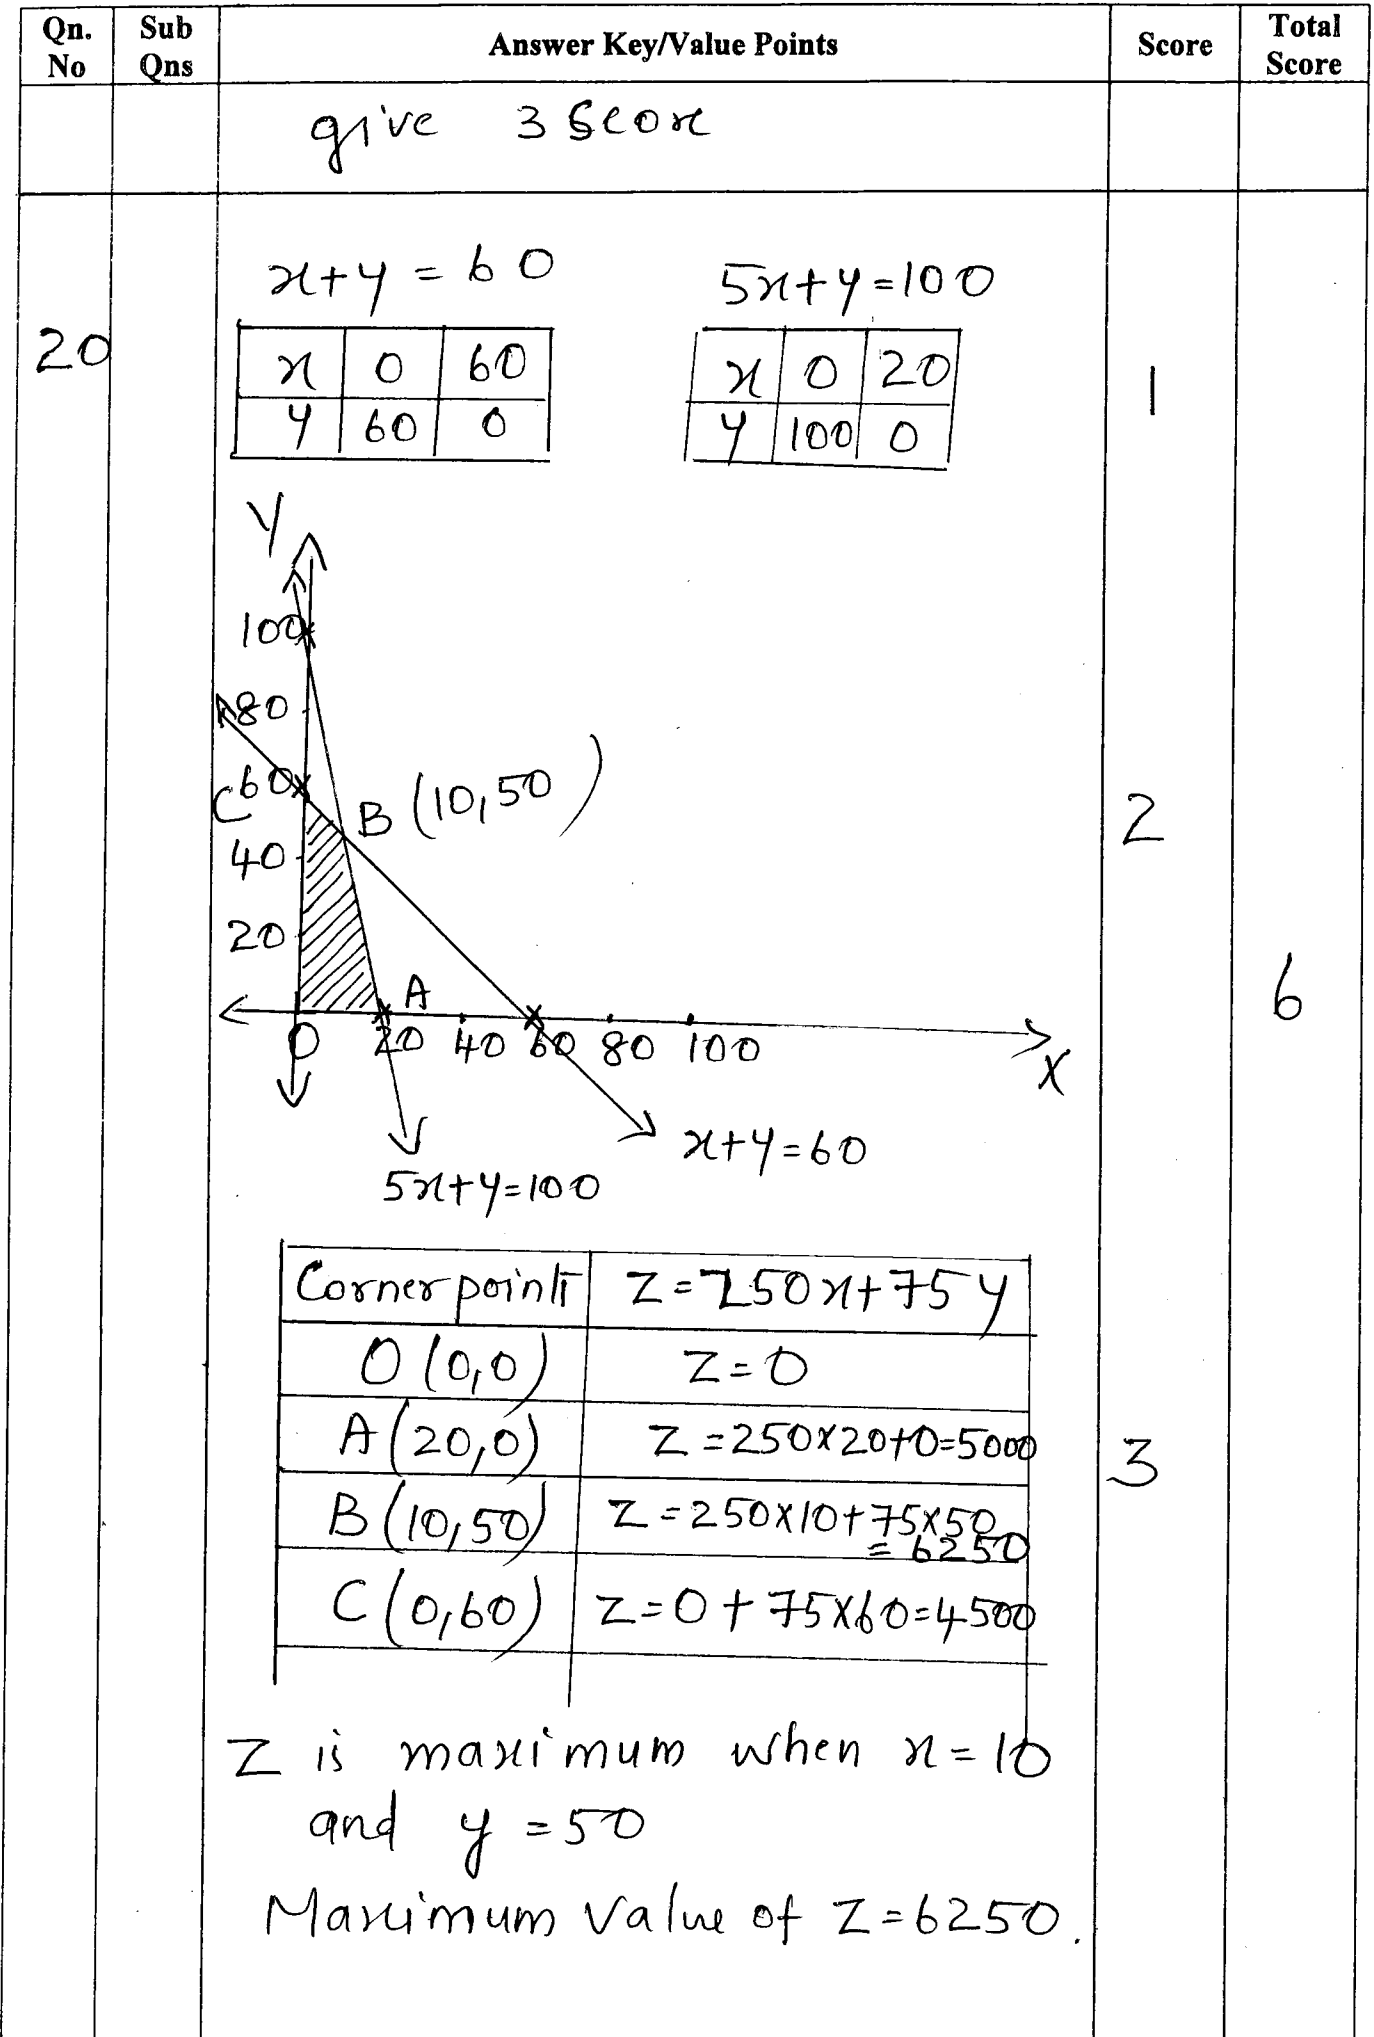 Qn. No Sub Qns Answer Key/Value Points Score Total Score
give 3 score
20
x+y = 60 5x+y=100
x 0 60 x 0 20
y 60 0 y 100 0
1
Y
100
80
C 60 B (10,50)
40
20
A
0 20 40 60 80 100
X
x+y=60
5x+y=100
2
6
Corner points Z=250x+75y
O (0,0) Z=0
A (20,0) Z=250x20+0=5000
B (10,50) Z=250x10+75x50
=6250
C (0,60) Z=0+75x60=4500
3
Z is maximum when x=10
and y=50
Maximum value of Z=6250.